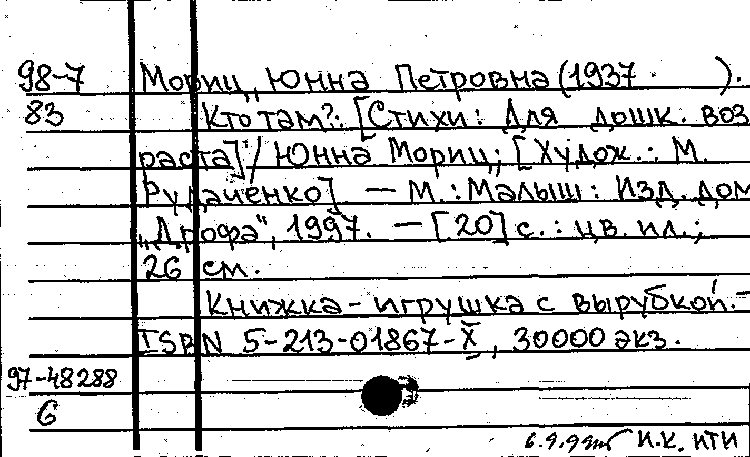 98-7 Мориц, Юнна Петровна (1937 ).
83 Кто там?: [Стихи: Для дошк. воз
раста] / Юнна Мориц; [Худож.: М.
Рудаченко] — М.: Малыш: Изд. дом
„Дрофа“, 1997. — [20] с.: цв. ил.;
26 см.
Книжка-игрушка с вырубкой. —
ISBN 5-213-01867-X, 30000 экз.
97-48288
6
И.К. ИТИ